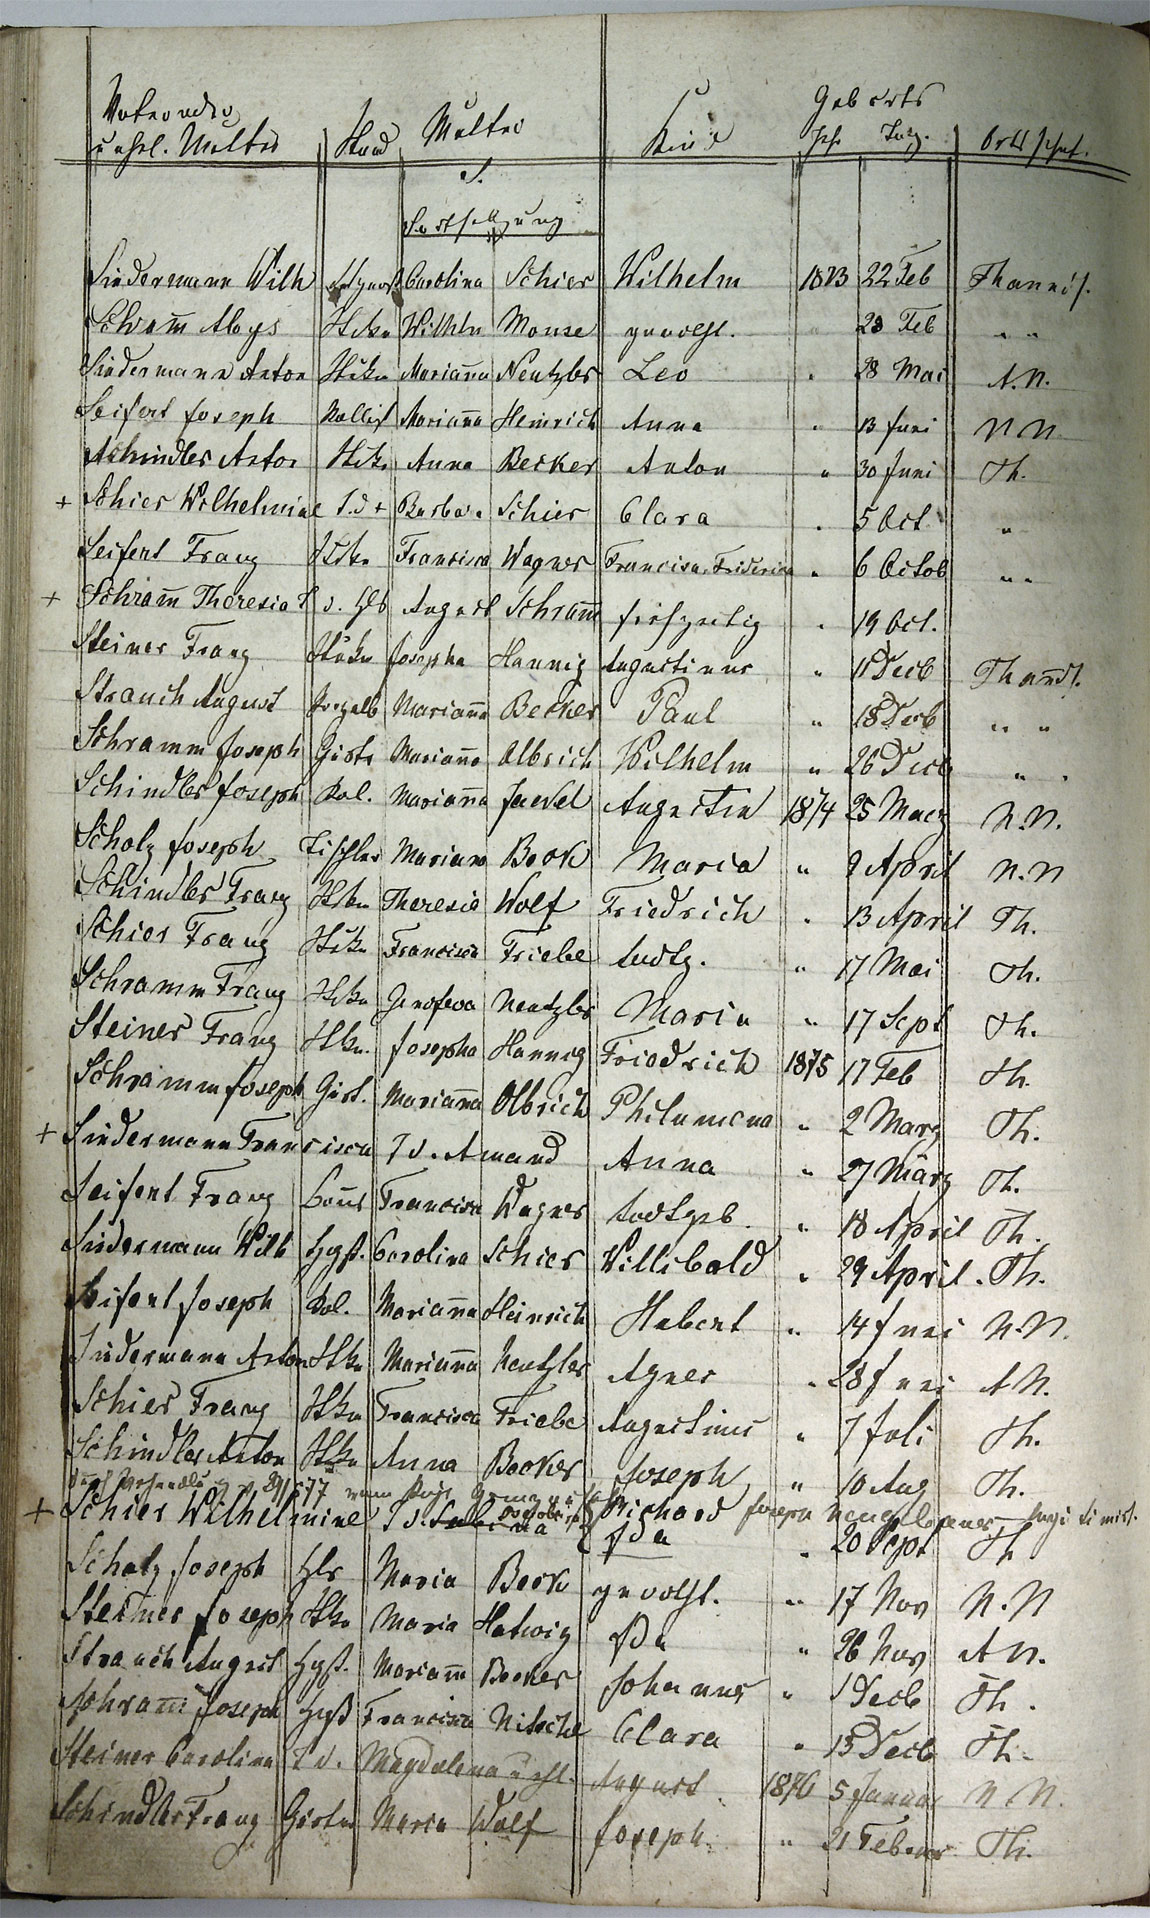 Vater oder Geburts
unehl. Mutter Stand Mutter Kind Jahr Tag. Ortschaft.
S.
Fortsetzung
Sindermann Wilh Carolina Schier Wilhelm 1873 22 Feb Thannd.
Schram̅ Aloys Stckn Wilhln Monse 23 Feb " "
Sindermann Anton Stckn Marian̅a Neutzler Leo " 28 Mai A.N.
Seifert Joseph Marian̅a Heinrich Anna " 13 Juni N N
Schindler Anton Stckn Anna Becker Anton " 30 Juni Th.
+ Schier Wilhelmine T. d + Barbara Schier Clara " 5 Oct "
Seifert Franz Stckn Francisca Wagner Francisca Friderica " 6 Octob " "
+ Schram̅ Theresia T d. August Schram̅ frühzeitig " 19 Oct.
Steiner Franz Stckn Josepha Hannig Augustinus " 11 Decb Thannd.
Strauch August Marian̅a Becker Paul " 18 Decb " "
Schramm Joseph Gärtr Marian̅a Olbrich Wilhelm " 26 Decb " "
Schindler Joseph Kol. Marian̅a Jaekel Augustin 1874 25 Maerz N.N.
Scholz Joseph Tischler Mariana Bock Maria " 9 April N.N
Schindler Franz Stckn Theresia Wolf Friedrich " 13 April Th.
Schier Franz Stckn Francisca Friebe todtg. " 17 Mai Th.
Schramm Franz Stckn Genofeva Neutzler Maria " 17 Sept Th.
Steiner Franz Stckn. Josepha Hannig Friedrich 1875 17 Feb Th.
Schramm Joseph Gärt. Marian̅a Olbrich Philumena " 2 Marz Th.
+ Sindermann Francisca T d. Amand Anna " 27 März Th.
Seifert Franz Francisca Wagner todtgeb. " 18 April Th.
Sindermann Wilh Carolina Schier Willibald " 29 April. Th.
Seifert Joseph Kol. Marian̅a Heinrich Hubert " 14 Juni N.N.
Sindermann Anton Stckn Marian̅a Neutzler Agnes " 28 Juni A N.
Schier Franz Stckn Francisca Friebe Augustinus " 7 Juli Th.
Schindler Anton Stckn Anna Becker Joseph " 10 Aug Th.
+ Schier Wilhelmine T d. Richard Joseph
Ida " 20 Sept Th
Scholz Joseph Hls Maria Bock " 17 Nov N.N
Steiner Joseph Stckn Maria Hatwig Ida " 26 Nov A N.
Strauch August Marian̅ Becker Johannes " 1 Decb Th.
Schram̅ Joseph Francisca Nitsche Clara " 15 Decb Th.
Steiner Carolina T d. Magdalena unehl. August 1876 5 Januar N N.
Schindler Franz Gärtn Maria Wolf Joseph " 21 Februar Th.